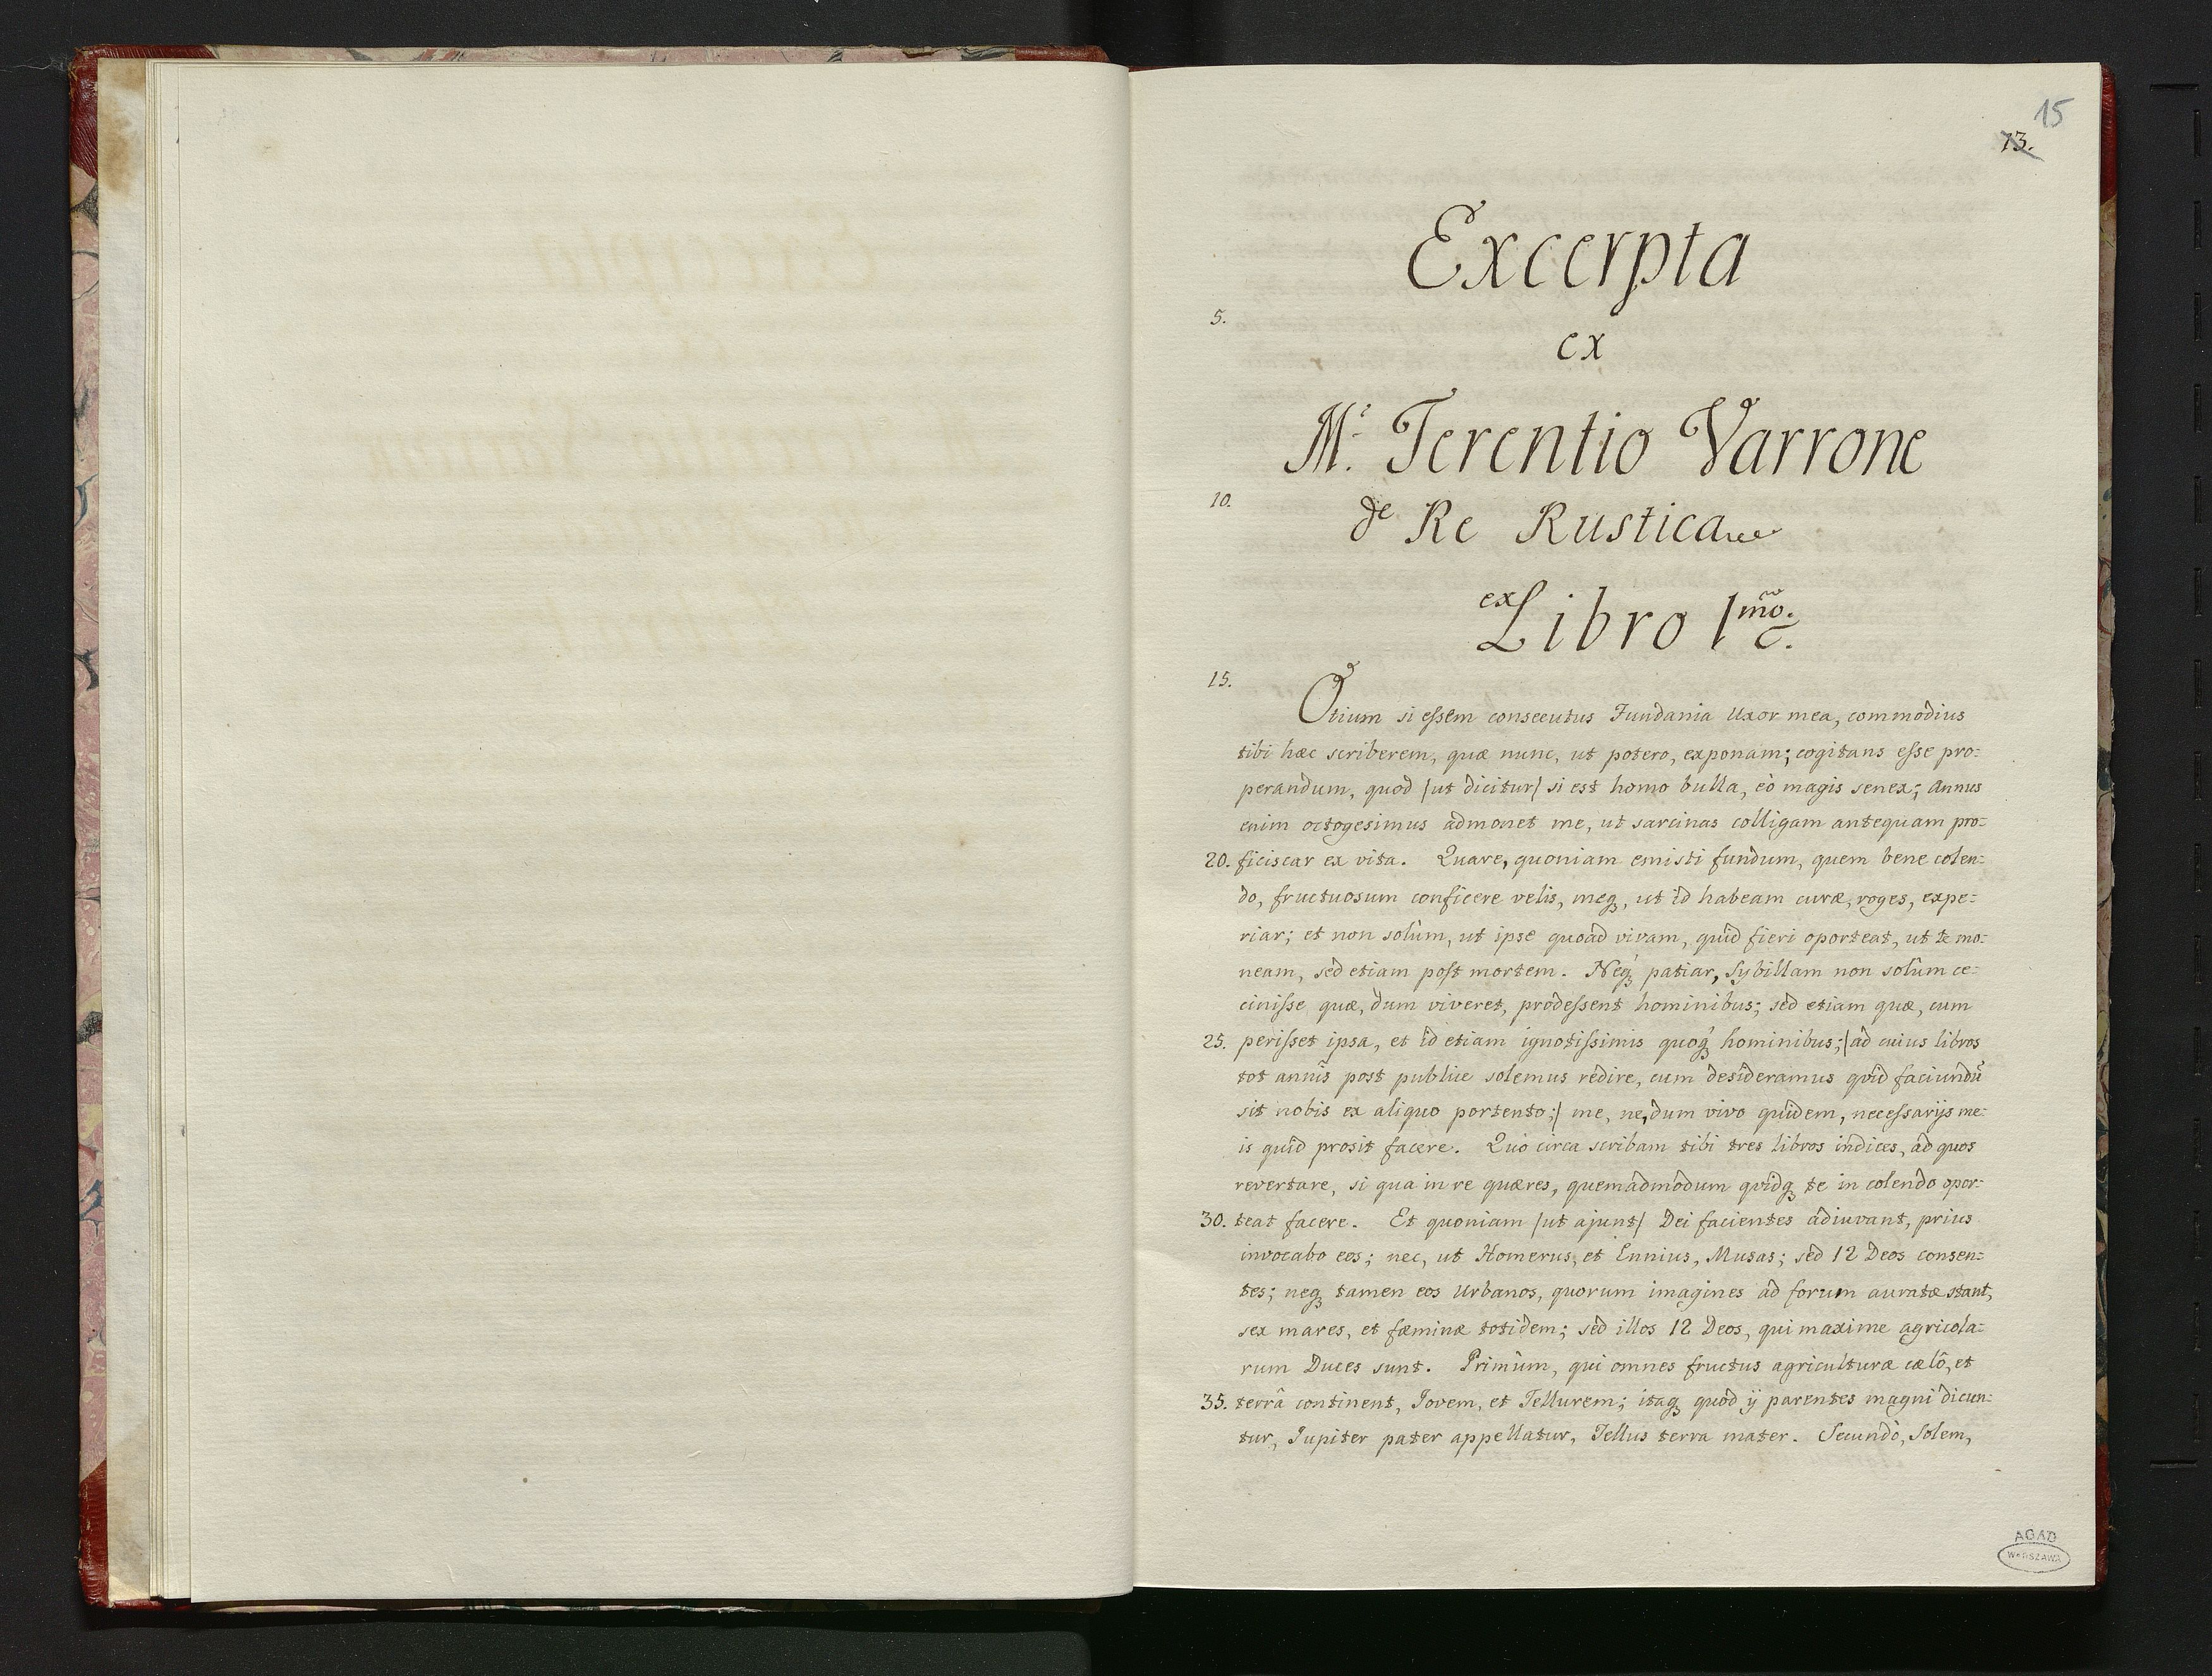 15
13.
Excerpta
5.
ex
M.^i Terentio Varrone
10.
de Re Rustica
ex Libro 1^mo.
15.
Otium si essem consecutus Fundania Uxor mea, commodius
tibi hæc scriberem, quæ nunc, ut potero, exponam; cogitans esse pro=
perandum, quod /ut dicitur/ si est homo bulla, eò magis senex; Annus
enim octogesimus admonet me, ut sarcinas colligam antequam pro=
20. ficiscar ex vita. Quare, quoniam emisti fundum, quem bene colen=
do, fructuosum conficere velis, meq, ut id habeam curæ, roges, expe=
riar; et non solùm, ut ipse quoad vivam, quid fieri oporteat, ut te mo=
neam, sed etiam post mortem. Neq patiar, Sybillam non solùm ce=
cinisse quæ, dum viveret, prodessent hominibus; sed etiam quæ, cum
25. perisset ipsa, et id etiam ignotissimis quoq hominibus; /ad cuius libros
tot annis post publice solemus redire, cum desideramus quid faciundũ
sit nobis ex aliquo portento;/ me, ne, dum vivo quidem, necessarijs me=
is quid prosit facere. Quò circa scribam tibi tres libros indices, ad quos
revertare, si qua in re quæres, quemadmodum quidq te in colendo opor=
30. teat facere. Et quoniam /ut ajunt/ Dei facientes adiuvant, prius
invocabo eos; nec, ut Homerus, et Ennius, Musas; sed 12 Deos consen=
tes; neq tamen eos Urbanos, quorum imagines ad forum auratæ stant,
sex mares, et fæminæ totidem; sed illos 12 Deos, qui maxime agricola=
rum Duces sunt. Primùm, qui omnes fructus agriculturæ cælô, et
35. terrâ continent, Jovem, et Tellurem; itaq quòd ij parentes magni dicun=
tur, Jupiter pater appellatur, Tellus terra mater. Secundò, Solem,
AGAD
WARSZAWA